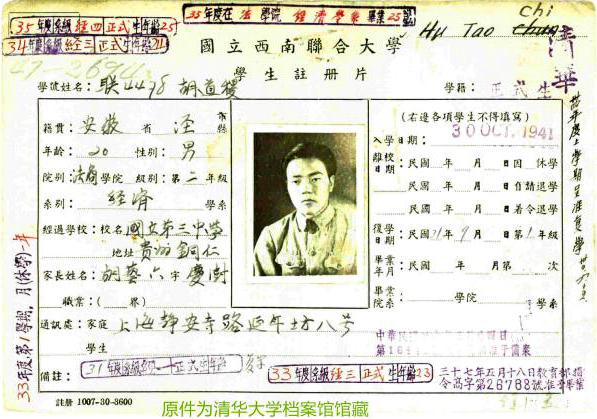 35年度在法學院經濟學系畢業25歲
35年度係級經四正式生年齡25
34年度係級經三正式生年齡24
國立西南聯合大學
Hu Tao Chi
清華
學生註冊片
學號姓名：联4498 胡道稷
學籍：正式生
籍貫：安徽省涇縣市
年齡：20 性別：男
院別：法商學院 級別：第二年級
系別：經濟學系
經過學校：校名 國立第三中學
地址 貴州銅仁
家長姓名：胡藝六 字慶澍
職業：(界)
通訊處：家庭 上海靜安寺路延年坊八号
學生
備註：
31年度係級經一正式生年齡
33年度係級經三正式生年齡23
(右邊各項學生不得填寫)
入學日期：30 OCT. 1941
離校日期：民國 年 月 日因 休學
民國 年 月 日自請退學
民國 年 月 日著令退學
復學日期：民國31年9月 日第1年級
畢業年月：民國 年 月第 次
畢業院系： 學院 學系
中華民國
三十七年五月十八日教育部指
令高字第26788號准予畢業
33年度第1學期 月(休學)一年
註冊 1007-30-3600
原件为清华大学档案馆馆藏